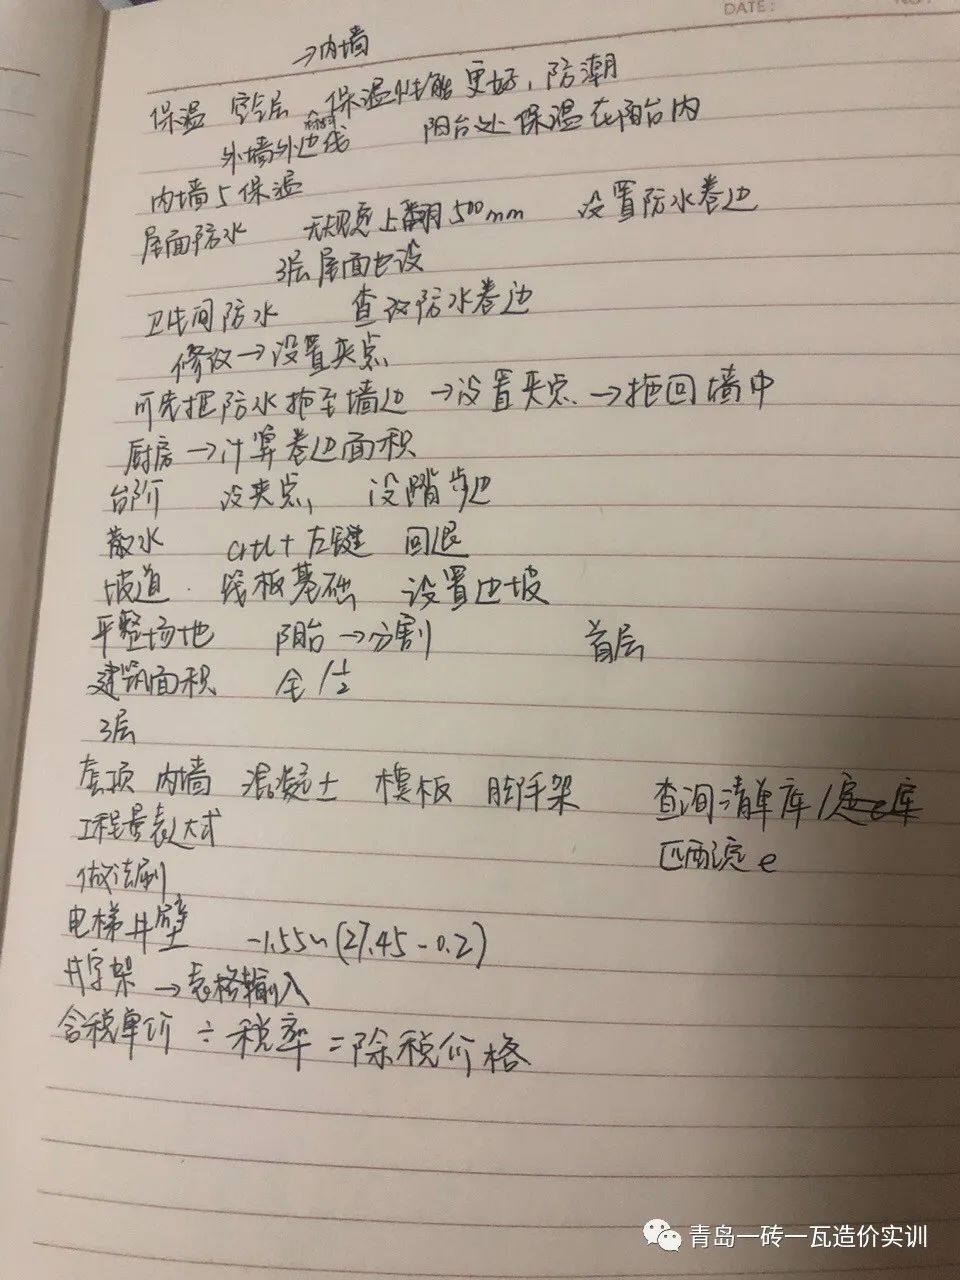 DATE:
NO.
→内墙
保温 空气层 保温性能更好，防潮
外墙外边线 阳台处保温在阳台内
内墙与保温
屋面防水 无规定上翻500mm 设置防水卷边
3层屋面也设
卫生间防水 查改防水卷边
修改→设置夹点
可先把防水拖至墙边→设置夹点→拖回墙中
厨房→计算卷边面积
台阶 设夹点， 设踏步边
散水 crtl+左键 回退
坡道 筏板基础 设置边坡
平整场地 阳台→分割 首层
建筑面积 全/1/2
3层
套项 内墙 混凝土 模板 脚手架 查询清单库/定e库
工程量表达式 匹配定e
做法刷
电梯井壁 -1.55~(27.45-0.2)
井字架→表格输入
含税单价÷税率=除税价格
青岛一砖一瓦造价实训